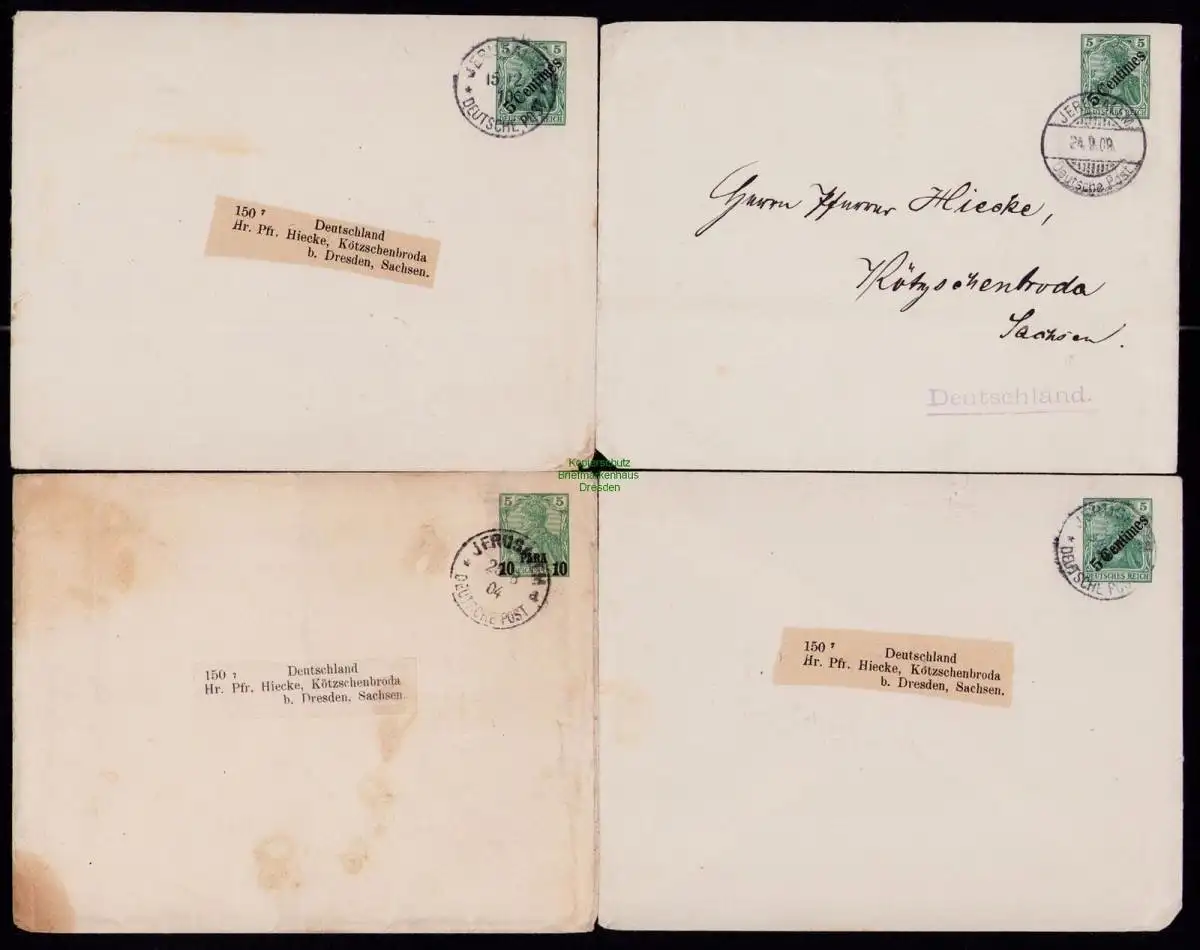 5 5
5 Centimes
JERUSALEM
15 12
DEUTSCHE POST
150 7 Deutschland
Hr. Pfr. Hiecke, Kötzschenbroda
b. Dresden, Sachsen.
5 5
5 Centimes
JERUSALEM
24.9.08.
Deutsche Post
Herrn Pfarrer Hiecke,
Kötzschenbroda
Sachsen.
Deutschland.
Kopierschutz
Briefmarkenhaus
Dresden
5 5
PARA
10 10
JERUSALEM
04 a
DEUTSCHE POST
150 7 Deutschland
Hr. Pfr. Hiecke, Kötzschenbroda
b. Dresden, Sachsen.
5
5 Centimes
DEUTSCHES REICH
DEUTSCHE POST
150 7 Deutschland
Hr. Pfr. Hiecke, Kötzschenbroda
b. Dresden, Sachsen.